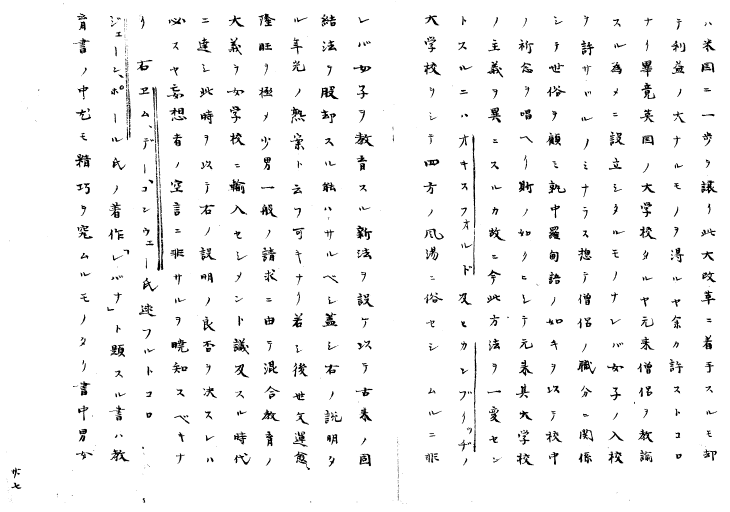 ハ米国ニ一歩ヲ譲リ此大改革ニ着手スルモ却
テ利益ノ大ナルモノヲ得ルヤ余カ許ストコロ
ナリ畢竟英国ノ大学校タルヤ元来僧侶ヲ教諭
スル為メニ設立シタルモノナレバ女子ノ入校
ヲ許サバルノミナラス想テ僧侶ノ職分ニ関係
シテ世俗ヲ顧ミ執中羅甸語ノ如キヲ以テ校中
ノ祈念ヲ唱ヘリ斯ノ如クニシテ元来其大学校
ノ主義ヲ異ニスルカ故ニ今此方法ヲ一変セン
トスルニハオキスフオルド及ヒカンブリッヂノ
大学校ヲシテ四方ノ風潟ニ俗セシムルニ非
レバ女子ヲ教育スル新法ヲ設ケ以テ古来ノ固
結法ヲ脱却スル能ハサルベシ蓋シ右ノ説明タ
ル年光ノ熟案ト云フ可キナリ若シ後世文運愈
隆旺ヲ極メ少男一般ノ請求ニ由テ混合教育ノ
大義ヲ女学校ニ輸入セシメント議及スル時代
ニ達シ此時ヲ以テ右ノ説明ノ良否ヲ決スレハ
必スヤ妄想者ノ空言ニ非サルヲ暁知スベキナ
リ 右ヱム、デー、コンウェー氏述フルトコロ
ジェーン、ポール氏ノ著作「レバナ」ト題スル書ハ教
育書ノ中尤モ精巧ヲ究ムルモノタリ書中男女
廿七